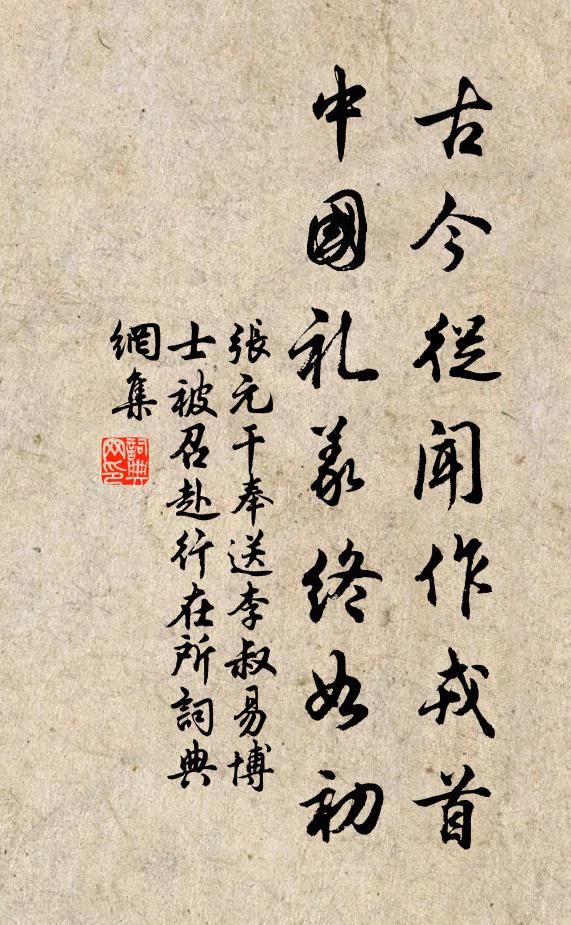 古今從闻作戎首
中國礼義終如初
張元干奉送李叔易博
士被召赴行在所詞典
網集
詞典
网印